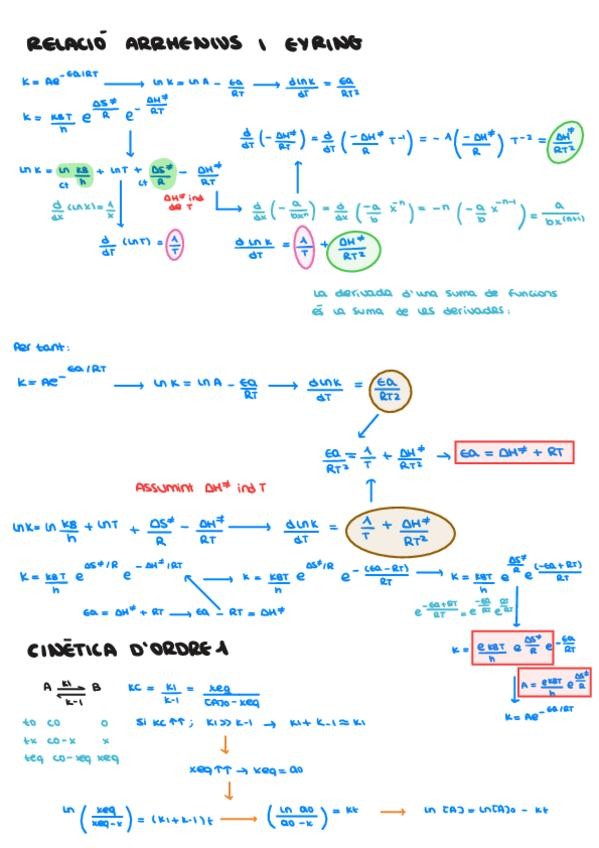 RELACIÓ ARRHENIUS I EYRING
K = Ae^-Ea/RT → ln K = ln A - Ea/RT → d ln K/dT = Ea/RT²
K = KBT/h e^ΔS≠/R e^-ΔH≠/RT
d/dT (-ΔH≠/RT) = d/dT (-ΔH≠/R T⁻¹) = -1(-ΔH≠/R) T⁻² = ΔH≠/RT²
ln K = ln KB/h + ln T + ΔS≠/R - ΔH≠/RT
ct ct
ΔH≠ ind de T
d/dx (ln x) = 1/x
d/dx (-a/bxⁿ) = d/dx (-a/b x⁻ⁿ) = -n (-a/b x⁻ⁿ⁻¹) = a/bx⁽ⁿ⁺¹⁾
d/dT (ln T) = 1/T
d ln K/dT = 1/T + ΔH≠/RT²
La derivada d'una suma de funcions
és la suma de les derivades:
Per tant:
K = Ae^-Ea/RT → ln K = ln A - Ea/RT → d ln K/dT = Ea/RT²
Ea/RT² = 1/T + ΔH≠/RT² → Ea = ΔH≠ + RT
Assumint ΔH≠ ind T
ln K = ln KB/h + ln T + ΔS≠/R - ΔH≠/RT → d ln K/dT = 1/T + ΔH≠/RT²
K = KBT/h e^ΔS≠/R e^-ΔH≠/RT → K = KBT/h e^ΔS≠/R e^-(Ea-RT)/RT → K = KBT/h e^ΔS≠/R e^(-Ea+RT)/RT
Ea = ΔH≠ + RT → Ea - RT = ΔH≠
e^-Ea+RT/RT = e^-Ea/RT e^RT/RT
K = eKBT/h e^ΔS≠/R e^-Ea/RT
A = eKBT/h e^ΔS≠/R
K = Ae^-Ea/RT
CINÈTICA D'ORDRE 1
A ⇌ B
K1
K-1
KC = K1/K-1 = xeq/[A]0-xeq
t0 c0 0
tx c0-x x
teq c0-xeq xeq
Si KC↑↑; K1 >> K-1 → K1 + K-1 ≈ K1
xeq↑↑ → xeq = a0
ln (xeq/xeq-x) = (K1+K-1)t → (ln a0/a0-x) = Kt → ln [A] = ln[A]0 - Kt